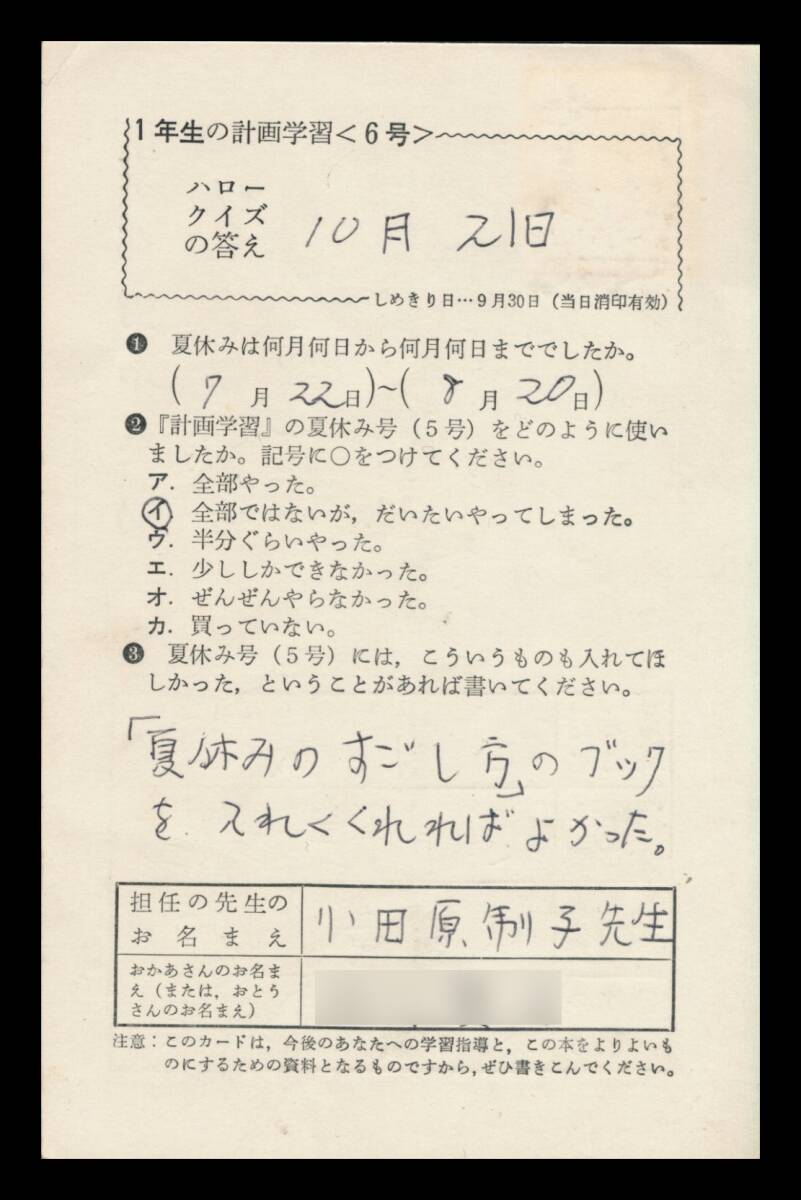 1年生の計画学習<6号>
ハロー
クイズ
の答え
10月 21日
しめきり日…9月30日(当日消印有効)
❶ 夏休みは何月何日から何月何日まででしたか。
(7月22日)~(8月20日)
❷『計画学習』の夏休み号(5号)をどのように使い
ましたか。記号に○をつけてください。
ア. 全部やった。
イ. 全部ではないが, だいたいやってしまった。
ウ. 半分ぐらいやった。
エ. 少ししかできなかった。
オ. ぜんぜんやらなかった。
カ. 買っていない。
❸ 夏休み号(5号)には, こういうものも入れてほ
しかった, ということがあれば書いてください。
「夏休みのすごし方」のブック
を入れてくれればよかった。
担任の先生の
お名まえ
小田原制子先生
おかあさんのお名ま
え(または, おとう
さんのお名まえ)
注意:このカードは, 今後のあなたへの学習指導と, この本をよりよいも
のにするための資料となるものですから, ぜひ書きこんでください。